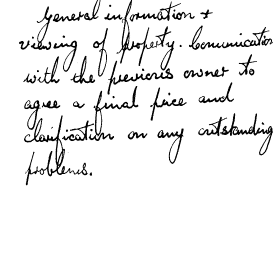 General information +
viewing of property. Comunication
with the previous owner to
agree a final price and
clarification on any outstanding
problems.